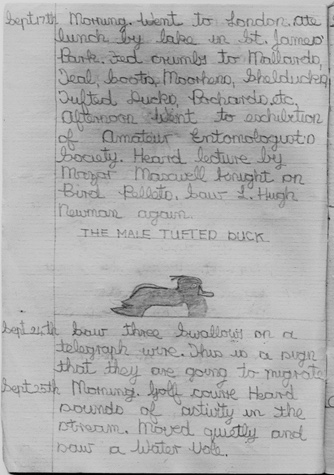 Sept 17th Morning. Went to London. Ate
lunch by lake in St. James'
Park. Fed crumbs to Mallards,
Teal, Coots, Moorhens, Shelducks,
Tufted Ducks, Pochards, etc.
Afternoon Went to exhibition
of Amateur Entomologists
Society. Heard lecture by
Major Maxwell Knight on
Bird Pellets. Saw L. Hugh
Newman again.
THE MALE TUFTED DUCK
Sept. 24th Saw three Swallows on a
telegraph wire. This is a sign
that they are going to migrate
Sept 25th Morning. Golf course Heard
sounds of activity in the
stream. Moved quietly and
saw a Water Vole.